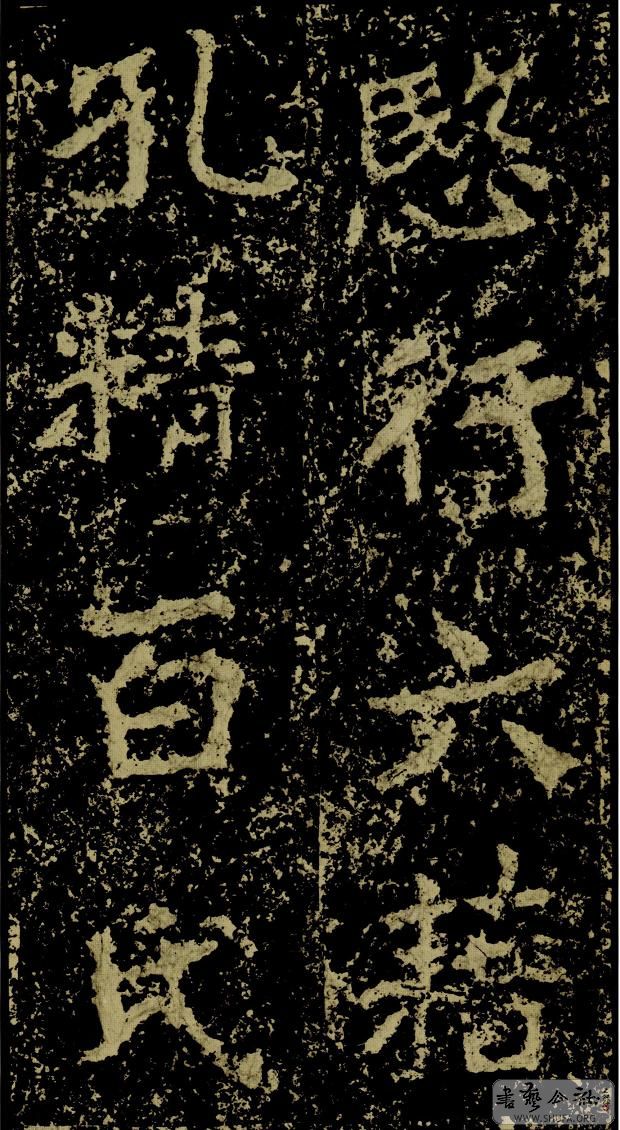 愍行六籍
孔精百氏
書藝公社
WWW.SHUFA.ORG